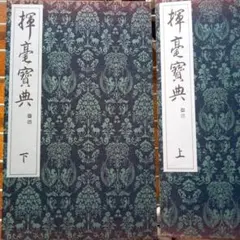 揮毫寶典
上
揮毫寶典
下